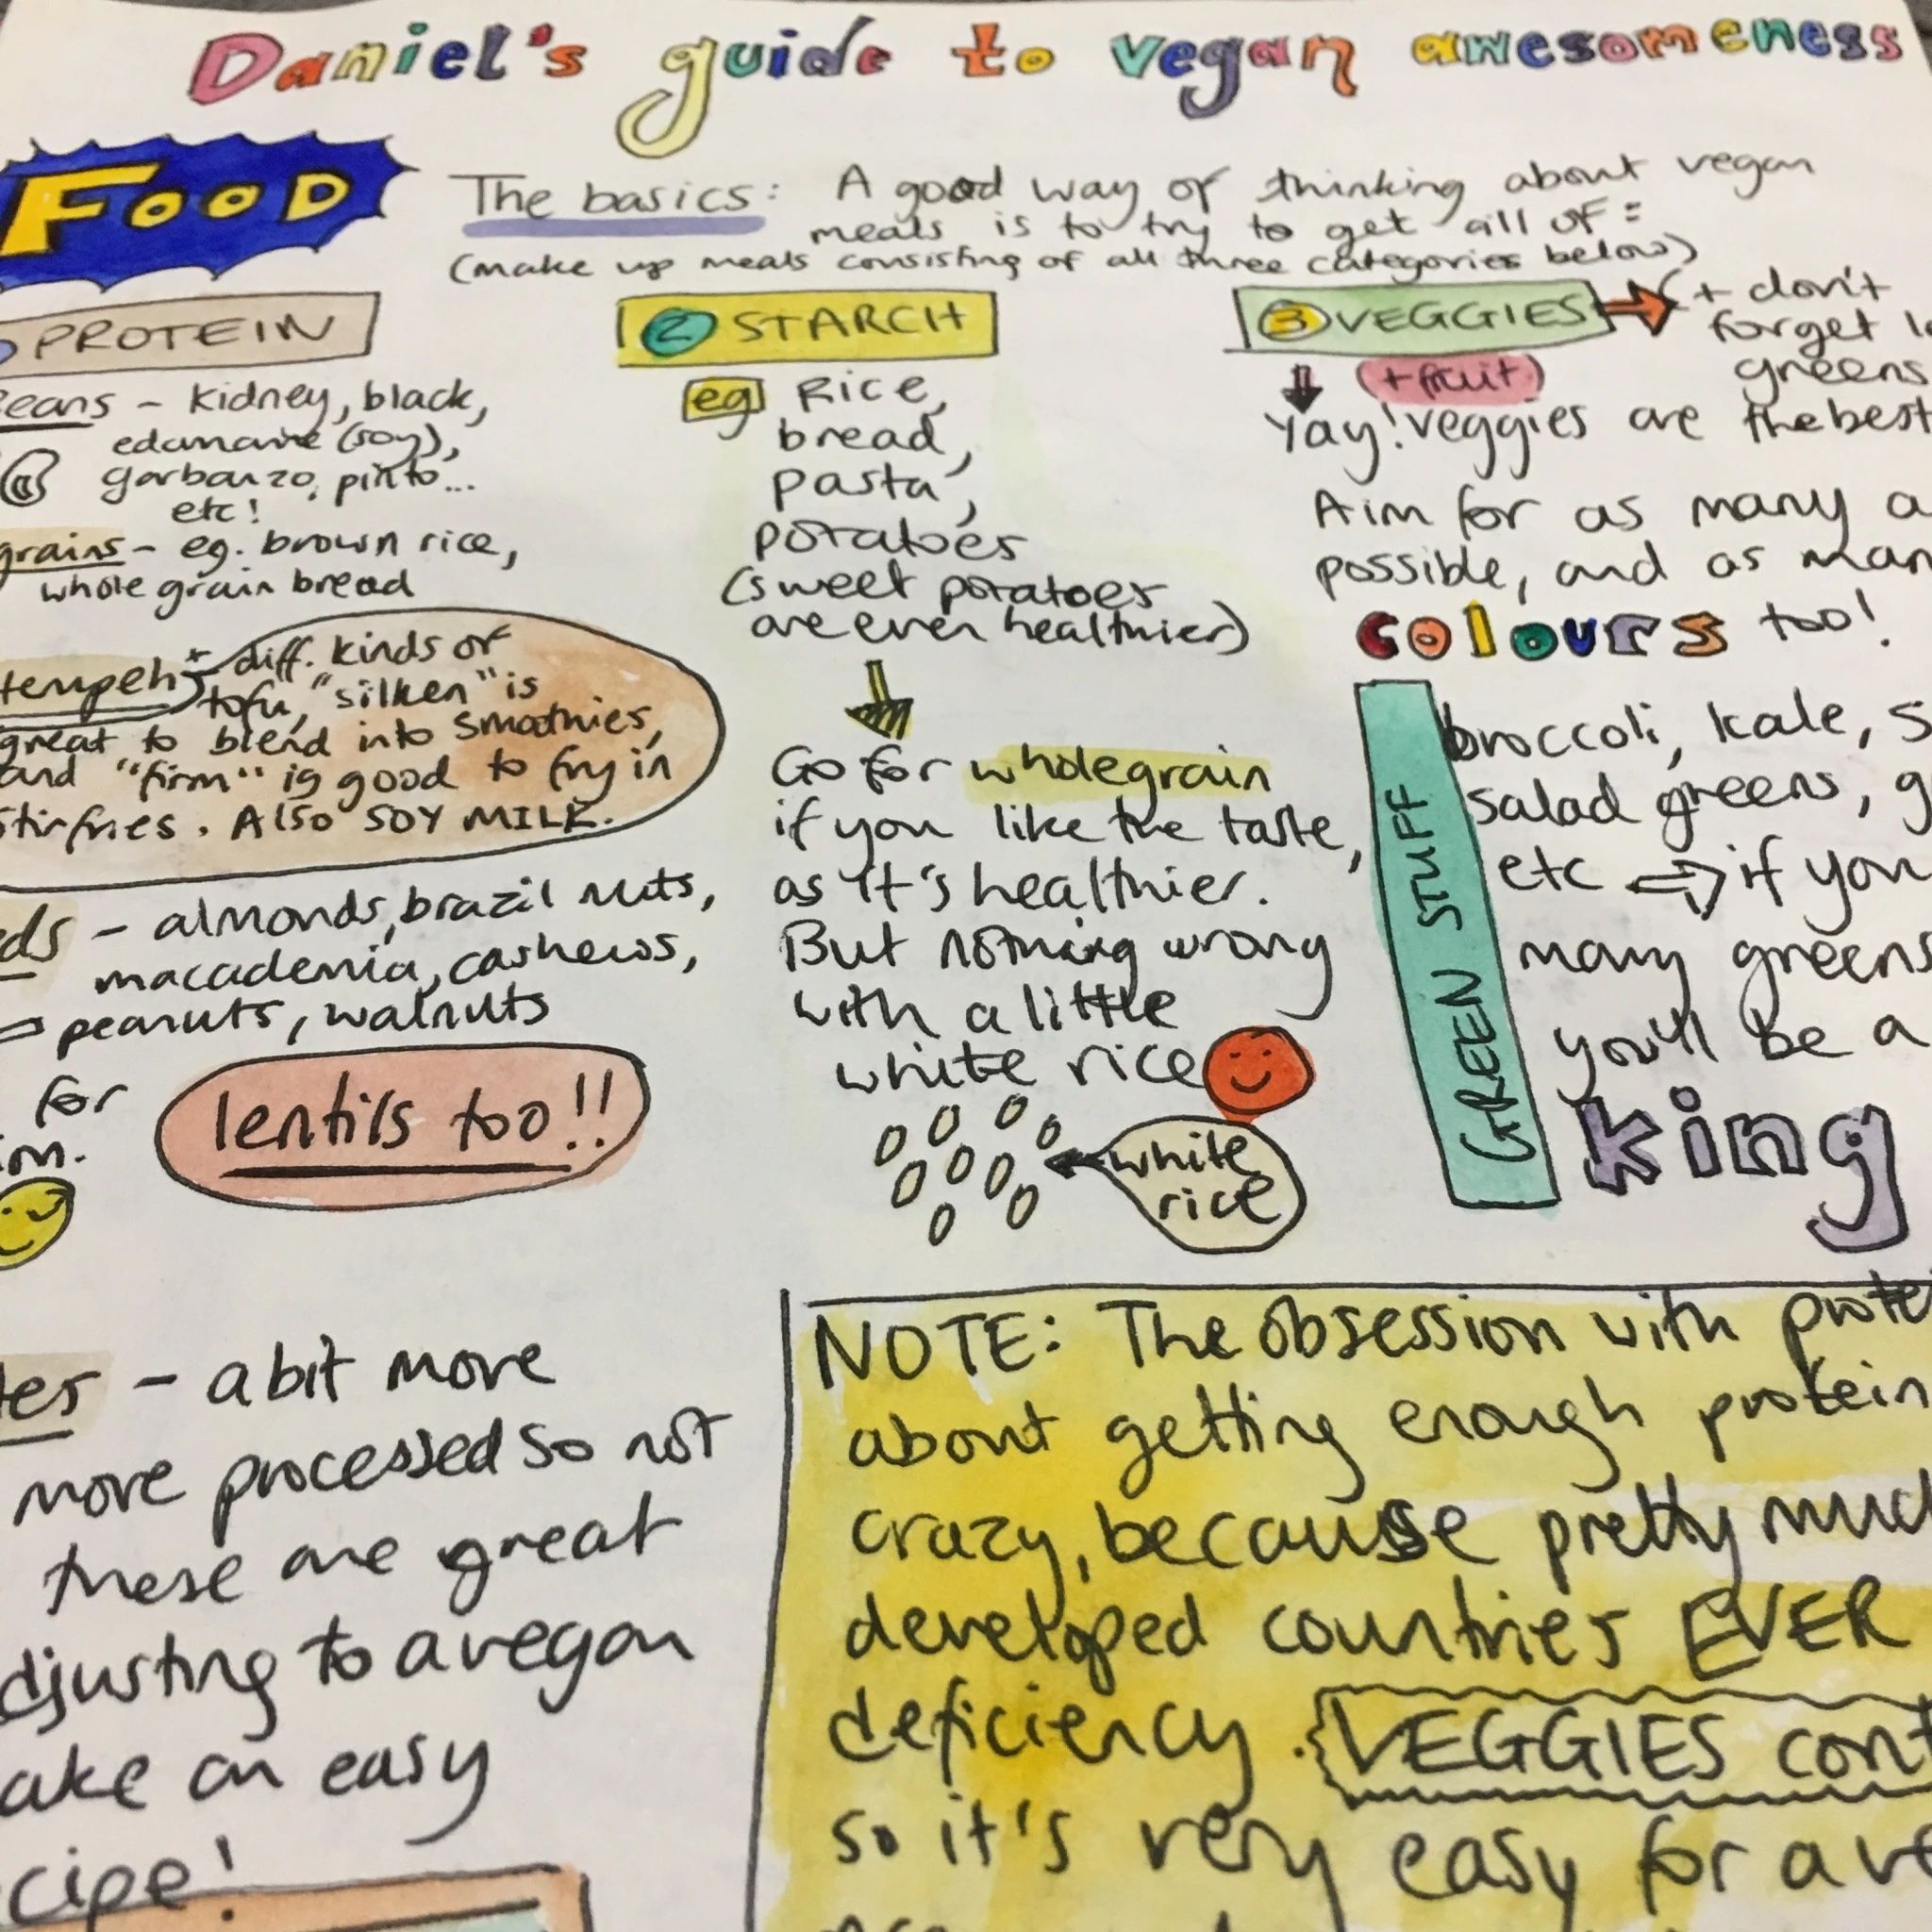 Daniel's guide to vegan awesomeness
FOOD
The basics: A good way of thinking about vegan
meals is to try to get all of:
(make up meals consisting of all three categories below)
PROTEIN
eans - kidney, black,
edamame (soy),
garbanzo, pinto...
etc!
grains - eg. brown rice,
whole grain bread
tempeh + diff. kinds of
tofu, "silken" is
great to blend into smoothies,
and "firm" is good to fry in
stirfries. Also SOY MILK.
ds - almonds, brazil nuts,
macademia, cashews,
peanuts, walnuts
for
lentils too!!
2 STARCH
eg Rice,
bread,
pasta,
potatoes
(sweet potatoes
are even healthier)
Go for wholegrain
if you like the taste,
as it's healthier.
But nothing wrong
with a little
white rice
white
rice
3 VEGGIES
+ don't
forget
greens
(+fruit)
Yay! veggies are the best
Aim for as many a
possible, and as man
colours too!
GREEN STUFF
broccoli, kale, s
salad greens, g
etc if you
many greens
you'll be a
king
- a bit more
more processed so not
these are great
djusting to a vegan
ake an easy
cipe!
NOTE: The obsession with prote
about getting enough protein
crazy, because pretty muc
developed countries EVER
deficiency. VEGGIES cont
so it's very easy for a ve